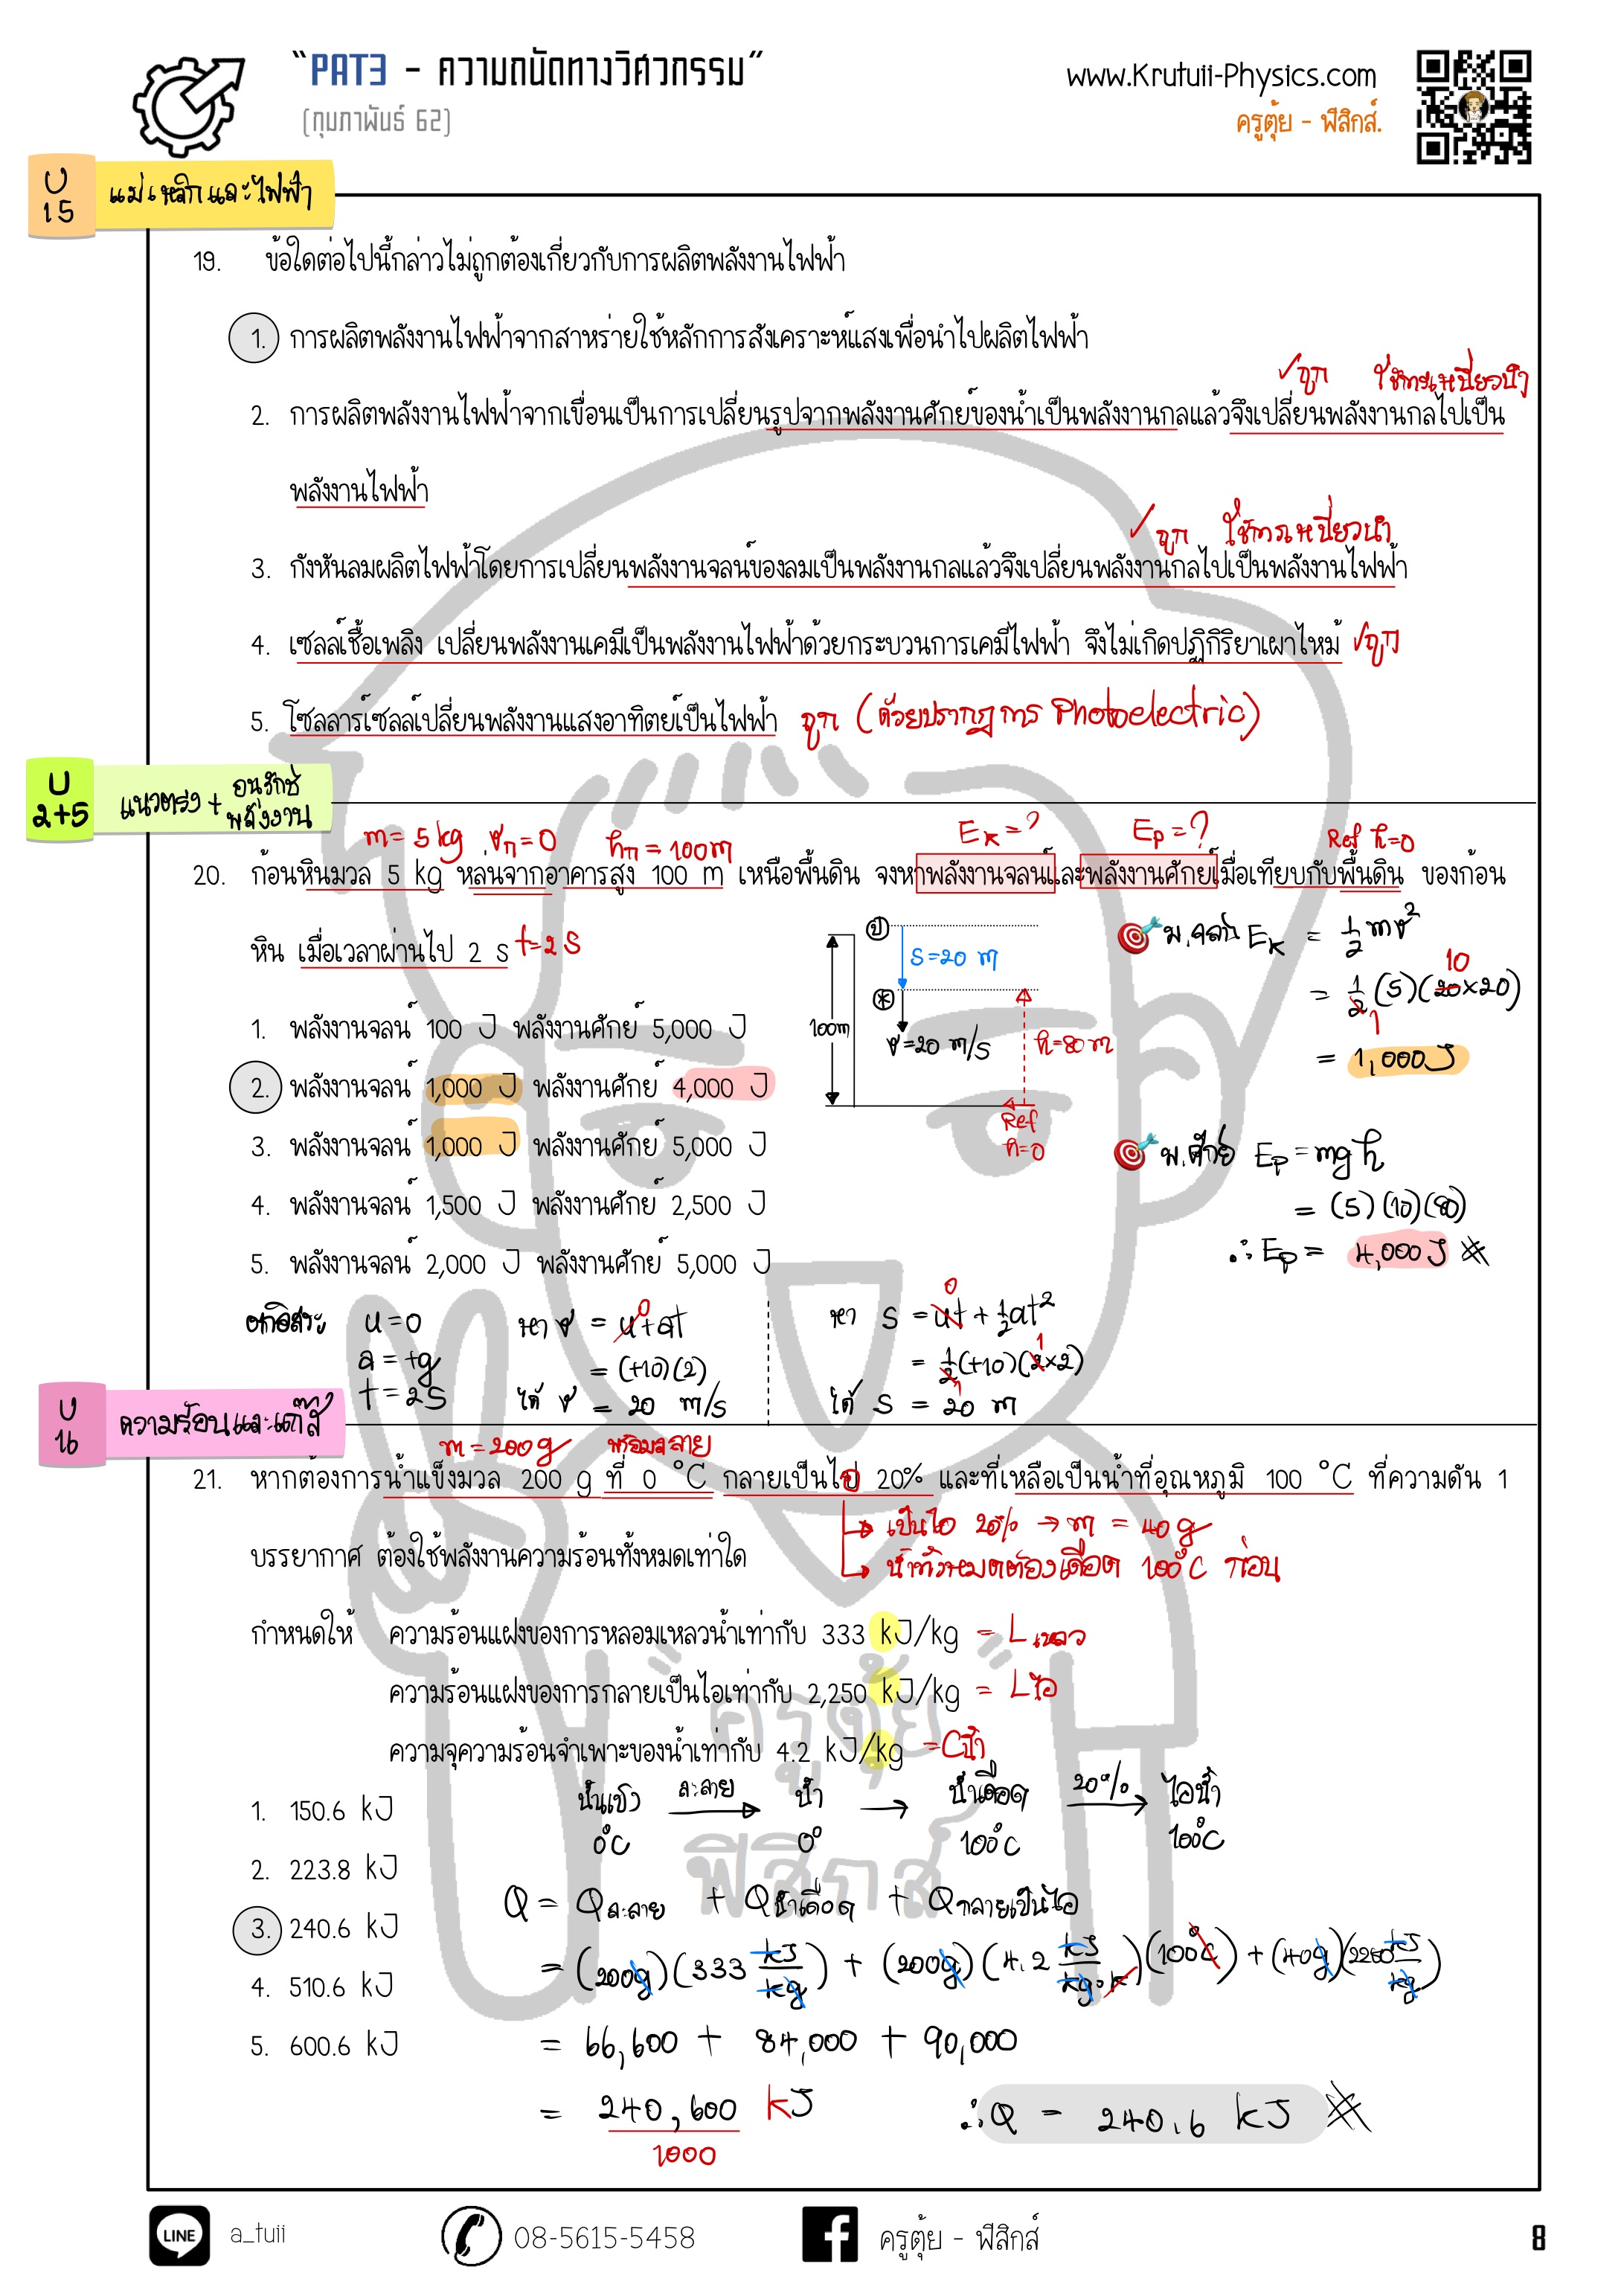 “PAT3 - ความถนัดทางวิศวกรรม”
(กุมภาพันธ์ 62)
www.Krutuii-Physics.com
ครูตุ้ย - ฟิสิกส์.
บ 15 แม่เหล็กและไฟฟ้า
19. ข้อใดต่อไปนี้กล่าวไม่ถูกต้องเกี่ยวกับการผลิตพลังงานไฟฟ้า
1. การผลิตพลังงานไฟฟ้าจากสาหร่ายใช้หลักการสังเคราะห์แสงเพื่อนำไปผลิตไฟฟ้า
✓ถูก ใช้การเหนี่ยวนำ
2. การผลิตพลังงานไฟฟ้าจากเขื่อนเป็นการเปลี่ยนรูปจากพลังงานศักย์ของน้ำเป็นพลังงานกลแล้วจึงเปลี่ยนพลังงานกลไปเป็น
พลังงานไฟฟ้า
✓ถูก ใช้การเหนี่ยวนำ
3. กังหันลมผลิตไฟฟ้าโดยการเปลี่ยนพลังงานจลน์ของลมเป็นพลังงานกลแล้วจึงเปลี่ยนพลังงานกลไปเป็นพลังงานไฟฟ้า
4. เซลล์เชื้อเพลิง เปลี่ยนพลังงานเคมีเป็นพลังงานไฟฟ้าด้วยกระบวนการเคมีไฟฟ้า จึงไม่เกิดปฏิกิริยาเผาไหม้ ✓ถูก
5. โซลลาร์เซลล์เปลี่ยนพลังงานแสงอาทิตย์เป็นไฟฟ้า ถูก (ด้วยปรากฏการ Photoelectric)
บ 2+5 แนวตรง + อนุรักษ์พลังงาน
m = 5 kg vก = 0 hก = 100 m Ek = ? Ep = ? Ref h=0
20. ก้อนหินมวล 5 kg หล่นจากอาคารสูง 100 m เหนือพื้นดิน จงหาพลังงานจลน์และพลังงานศักย์เมื่อเทียบกับพื้นดิน ของก้อน
หิน เมื่อเวลาผ่านไป 2 s t=2s
1. พลังงานจลน์ 100 J พลังงานศักย์ 5,000 J
2. พลังงานจลน์ 1,000 J พลังงานศักย์ 4,000 J
3. พลังงานจลน์ 1,000 J พลังงานศักย์ 5,000 J
4. พลังงานจลน์ 1,500 J พลังงานศักย์ 2,500 J
5. พลังงานจลน์ 2,000 J พลังงานศักย์ 5,000 J
100m
s=20 m
v=20 m/s
h=80 m
Ref
h=0
พ.จลน์ Ek = ½mv²
10
= ½(5)(20×20)
1
= 1,000 J
พ.ศักย์ Ep = mgh
= (5)(10)(80)
∴ Ep = 4,000 J #
ตกอิสระ u = 0
a = +g
t = 2s
หา v = u+at
0
= (+10)(2)
ได้ v = 20 m/s
0
หา s = ut + ½at²
1
= ½(+10)(2×2)
1
ได้ s = 20 m
บ 16 ความร้อนและแก๊ส
m = 200g พร้อมละลาย
21. หากต้องการน้ำแข็งมวล 200 g ที่ 0 °C กลายเป็นไอ 20% และที่เหลือเป็นน้ำที่อุณหภูมิ 100 °C ที่ความดัน 1
→ เป็นไอ 20% → m = 40 g
บรรยากาศ ต้องใช้พลังงานความร้อนทั้งหมดเท่าใด
→ น้ำทั้งหมดต้องเดือด 100°C ก่อน
กำหนดให้ ความร้อนแฝงของการหลอมเหลวน้ำเท่ากับ 333 kJ/kg = Lเหลว
ความร้อนแฝงของการกลายเป็นไอเท่ากับ 2,250 kJ/kg = Lไอ
ความจุความร้อนจำเพาะของน้ำเท่ากับ 4.2 kJ/kg =Cน้ำ
1. 150.6 kJ
2. 223.8 kJ
3. 240.6 kJ
4. 510.6 kJ
5. 600.6 kJ
น้ำแข็ง ละลาย → น้ำ → น้ำเดือด 20% → ไอน้ำ
0°C 0° 100°C 100°C
Q = Qละลาย + Qน้ำเดือด + Qกลายเป็นไอ
= (200g)(333 kJ/kg) + (200g)(4.2 kJ/kg·K)(100°C) + (40g)(2250 kJ/kg)
= 66,600 + 84,000 + 90,000
= 240,600 kJ
1000
∴ Q = 240.6 kJ #
“ครูตุ้ย”
ฟิสิกส์
LINE a_tuii
08-5615-5458
ครูตุ้ย - ฟิสิกส์
8